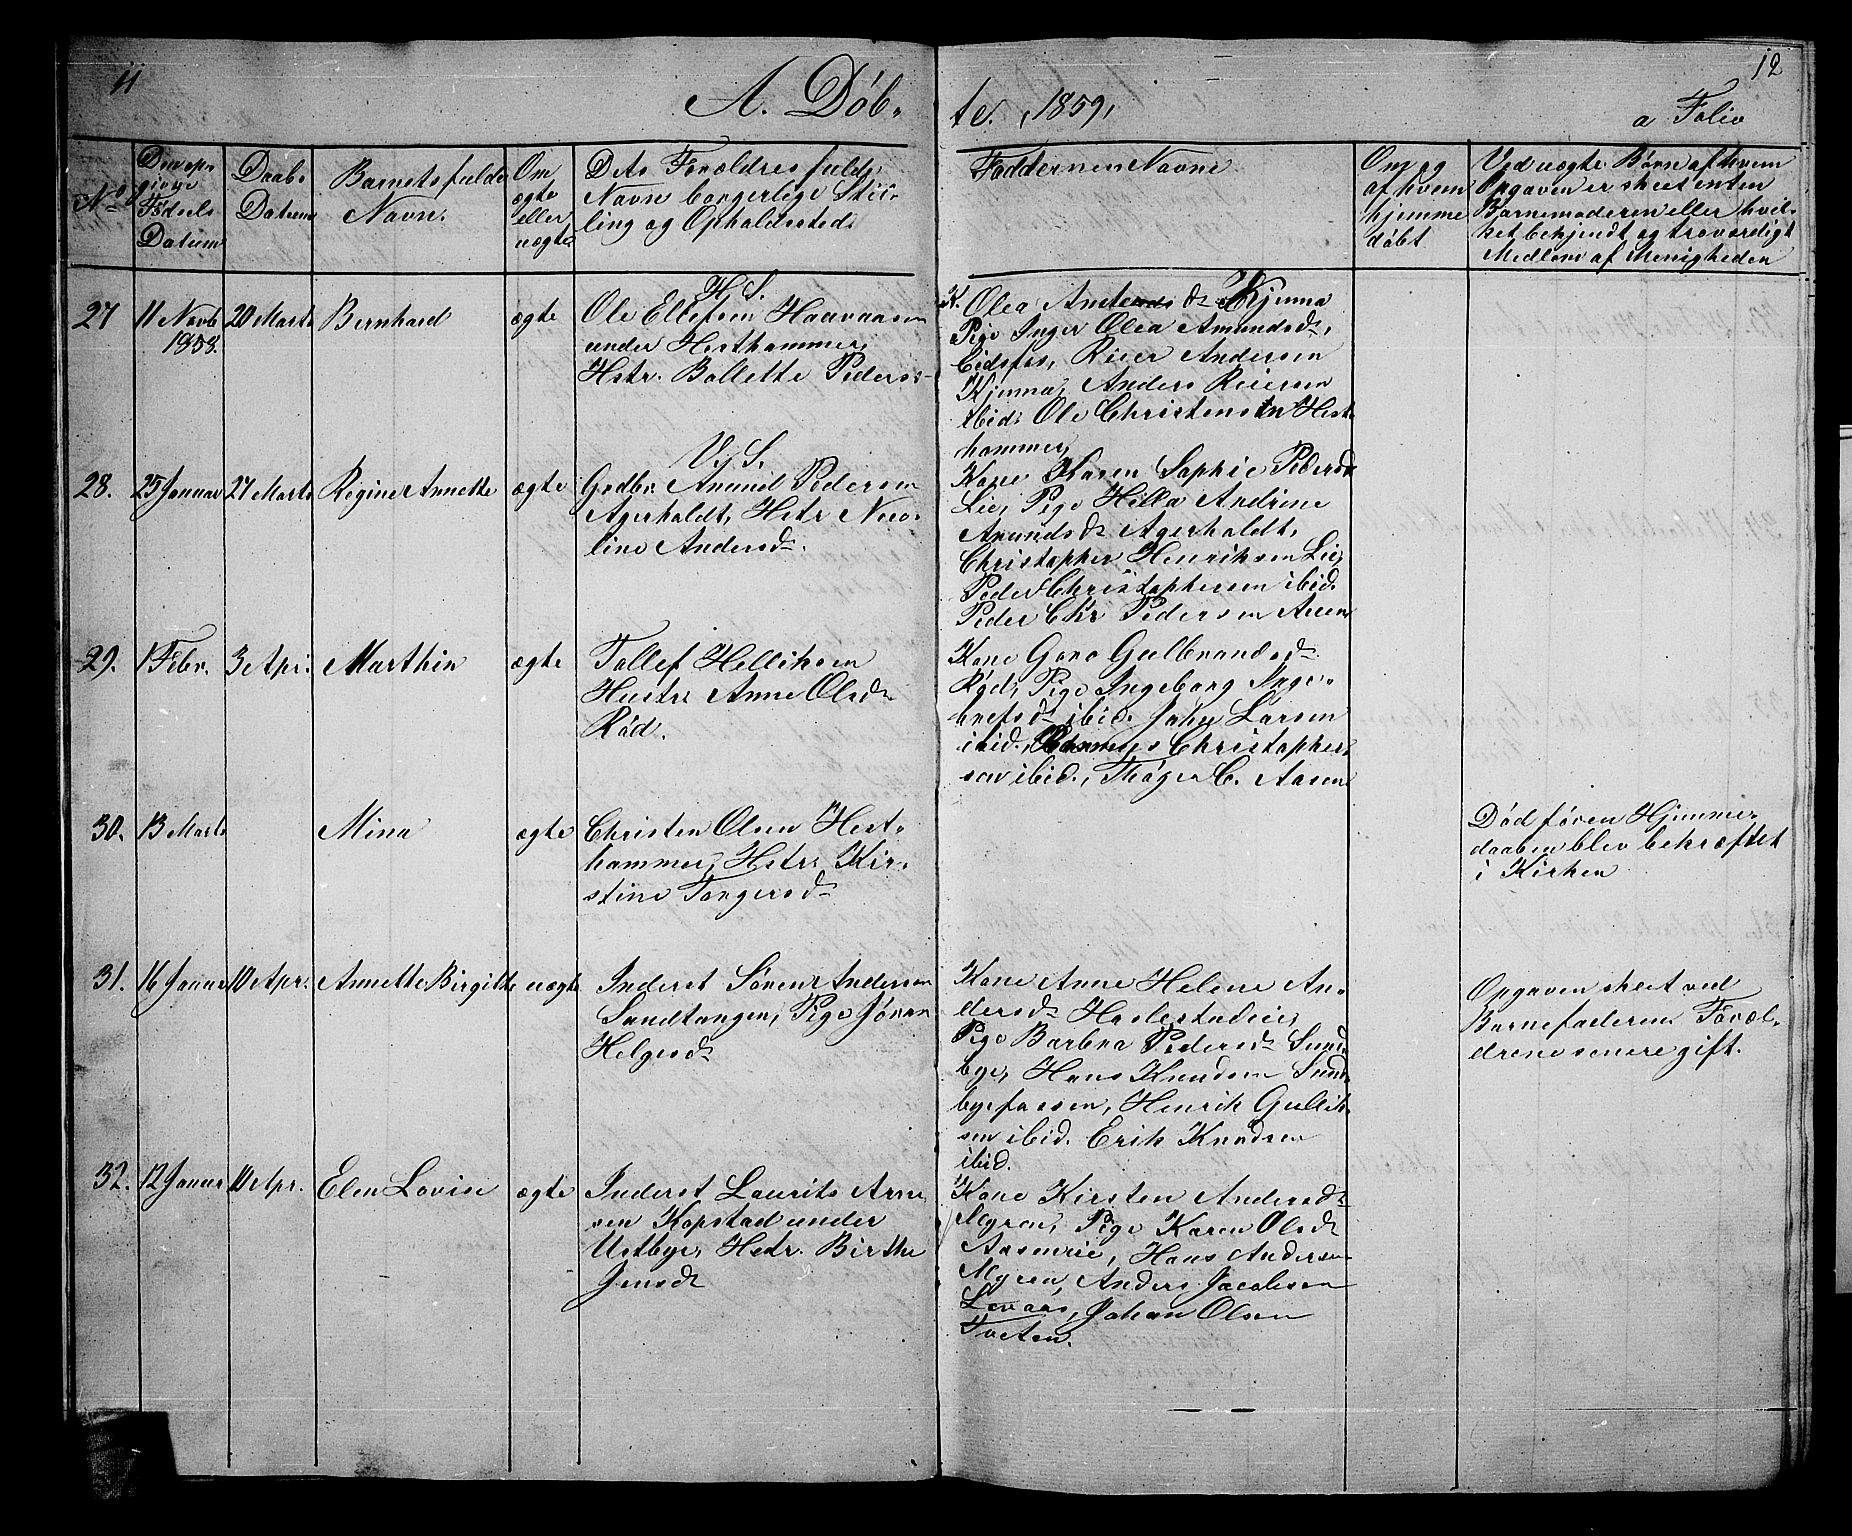 11
A. Døb-
te. 1859,
12
a Folio
No
Den opgivne Fødsels Datum
Daabs Datum
Barnets fulde Navn.
Om ægte eller uægte
Dets Forældres fulde
Navn borgerlige Stil-
ling og Opholdssted.
Faddernes Navne
Om og af hvem hjemme døbt
Ved uægte Børn af hvem
Opgaven er skeet enten
Barnemoderen eller hvil-
ket bekjendt og troværdigt
Medlem af Menigheden
H. S.
27 11 Novb 1858. 20 Marts Bernhard ægte
Ole Ellefsen Haavaasen
under Hesthammer,
Hstr. Bollette Peders-
K. Olea Anders d. Kjenna
Pige Inger Olea Amundsd.
Eidsfos, Reier Andersen
Kjenna, Anders Reiersen
ibid. Ole Christensen Hest-
hammer,
V. S.
28. 25 Januar 27 Marts Regine Annette ægte
Grdbr. Anund Pedersen
Agerholdt, Hstr. Nico-
line Andersd.
Kone Karen Sophie Pedersd
Lie, Pige Hella Andrine
Anundsd. Agerholdt,
Christopher Henriksen Lie,
Peder Christophersen ibid.
Peder Chr Pedersen
29. 1 Febr. 3 Apr. Marthin ægte
Tollef Helliksen
Hustr. Anne Olsd.
Rød.
Kone Goro Gulbrandsd.
Rød, Pige Ingeborg Inge-
bretsd. ibid. John Larsen
ibid. Christopher-
sen ibid., Thøger C. Aasen
30. 13 Marts Mina ægte
Christen Olsen Hest-
hammer, Hstr. Kir-
stine Torgersd.
Død føren Hjemme-
daaben blev bekræftet
i Kirken
31. 16 Januar 10 Apr. Annette Birgitte uægte
Inderst Søren Andersen
Sandtangen, Pige Jøran
Helgesd.
Kone Anne Helene An-
dersd. Haslestadeie,
Pige Barbra Pedersd. Sund-
bye, Hans Knudsen Sund-
byefossen, Henrik Gullik-
sen ibid. Erik Knudsen
ibid.
Opgaven skeet ved
Barnefaderen. Foræl-
drene senere gift.
32. 12 Januar 10 Apr. Elen Lovise ægte
Inderst Laurits Arne
sen Kopstad under
Ustbye, Hstr. Birthe
Jensd.
Kone Kirsten Andersd.
Myren, Pige Karen Olsd.
Aasmeie, Hans Andersen
Myren, Anders Jacobsen
Lovaas, Johan Olsen
Tveten.